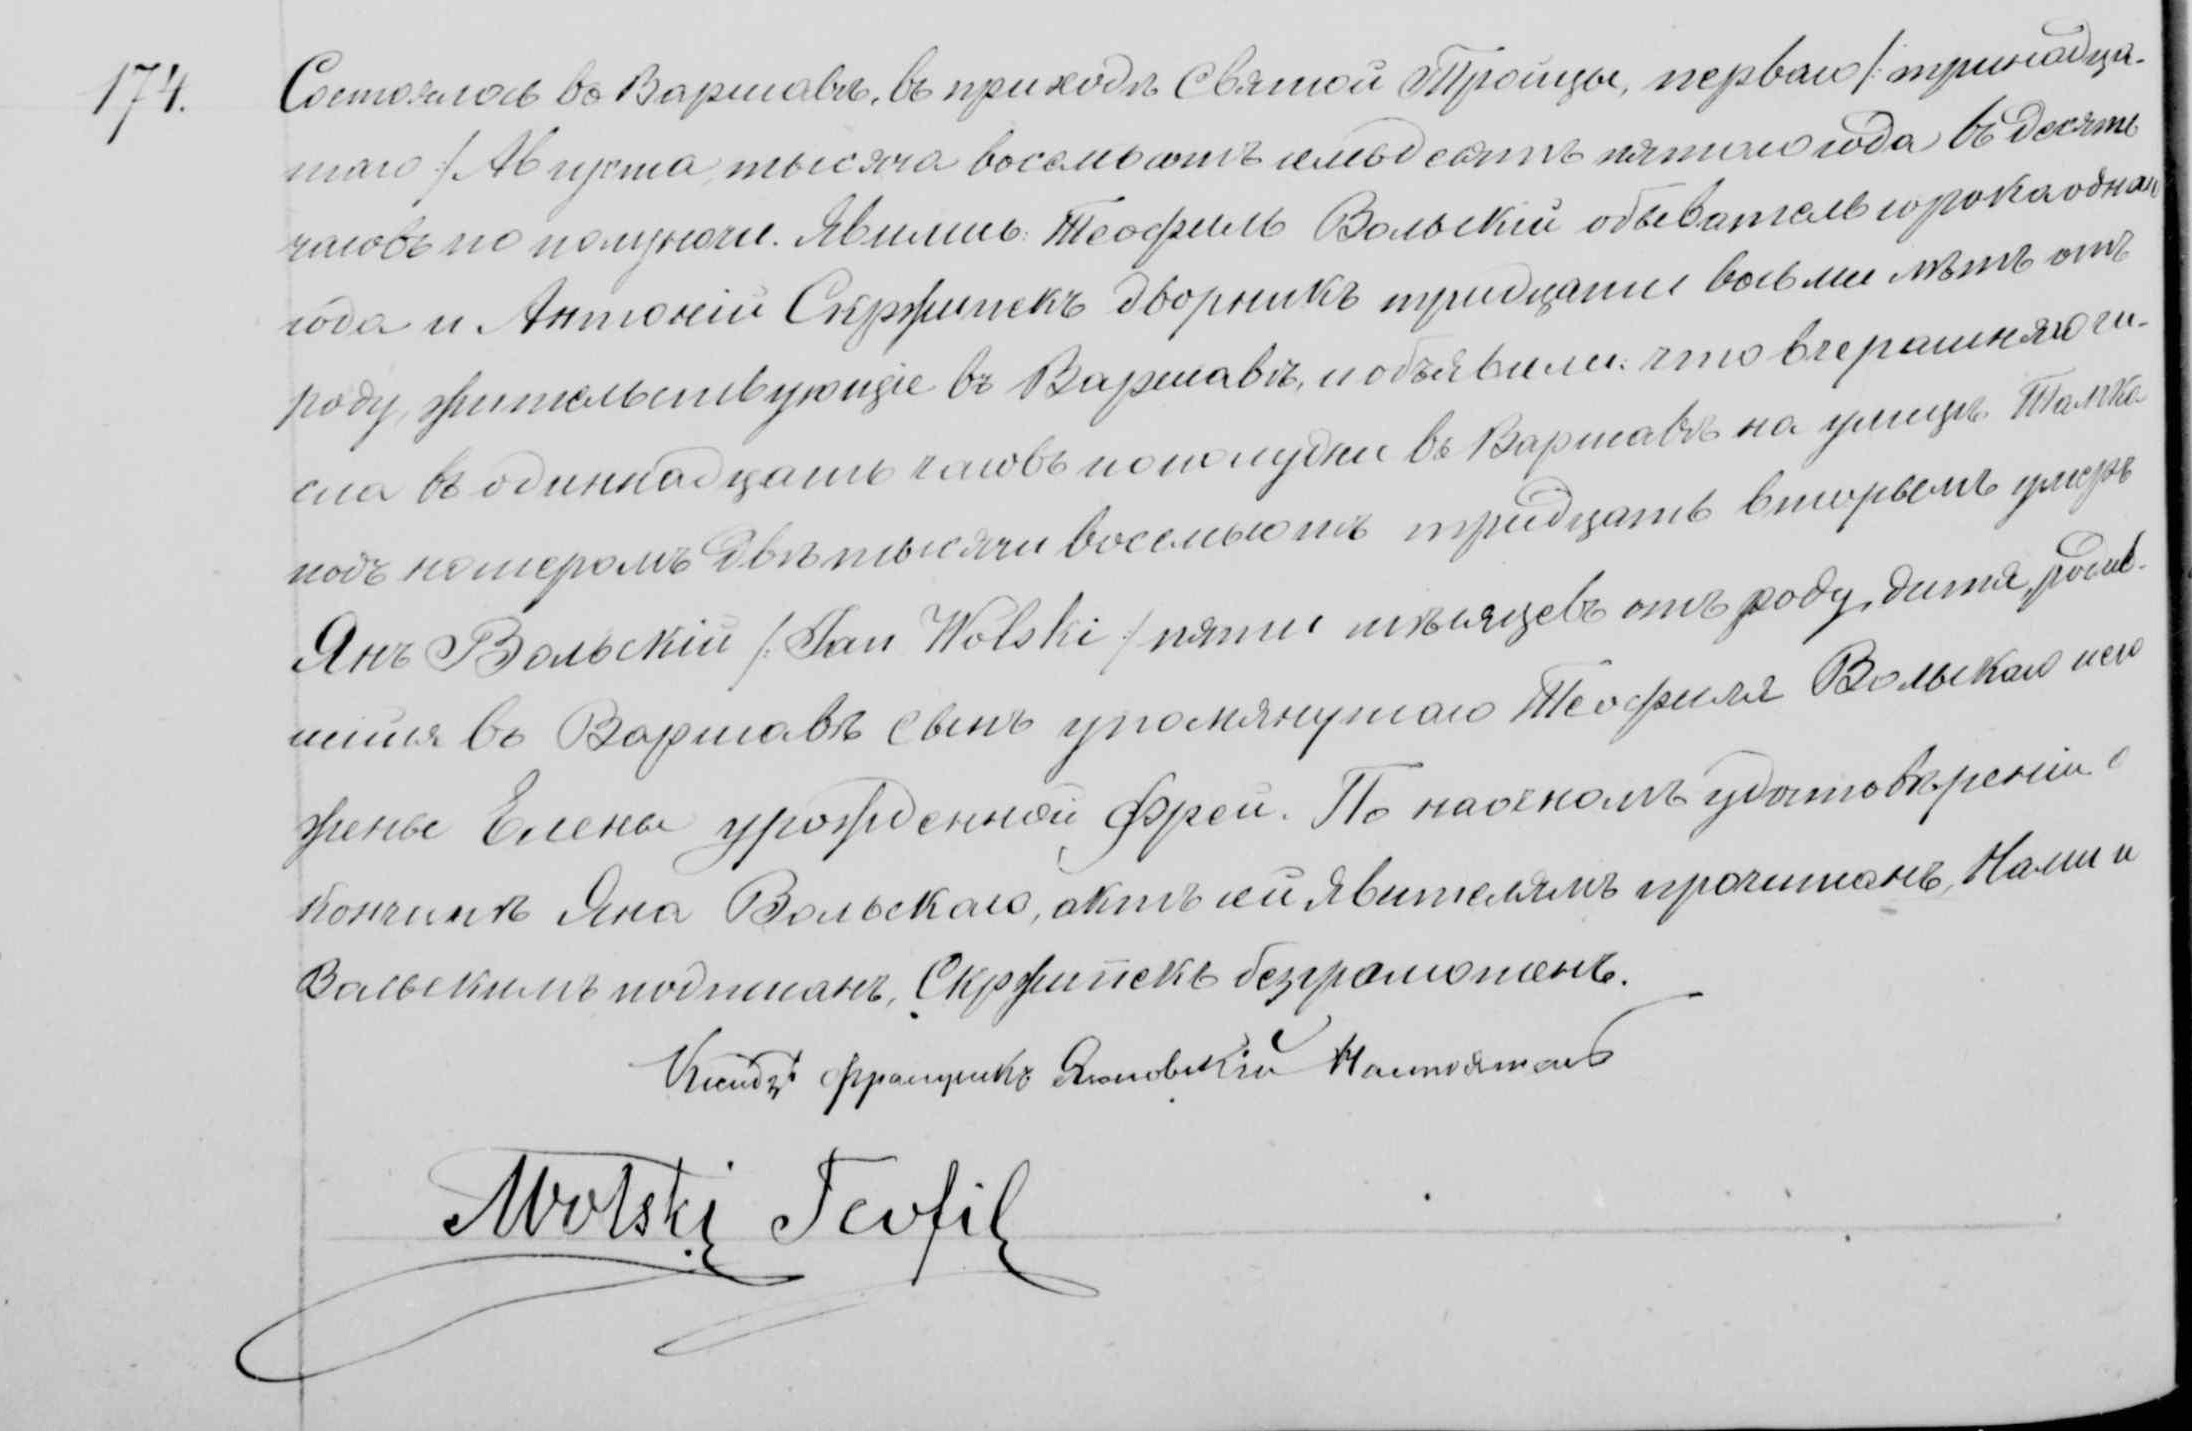 174.
Состоялось въ Варшавѣ, въ приходѣ Святой Тройцы, перваго /: тринадца-
таго :/ Августа, тысяча восемьсотъ семьдесятъ пятаго года въ десять
часовъ по полуночи. Явились: Теофиль Вольскій обыватель сорока одного
года и Антоній Скржипекъ дворникъ тридцати восьми лѣтъ отъ
роду, жительствующіе въ Варшавѣ, и объявили: что вчерашняго чи-
сла въ одиннадцать часовъ пополудни въ Варшавѣ на улицѣ Тамка
подъ номеромъ двѣ тысячи восемьсотъ тридцать вторымъ умеръ
Янъ Вольскій /: Jan Wolski :/ пяти мѣсяцевъ отъ роду, дитя, родив-
шійся въ Варшавѣ сынъ упомянутаго Теофиля Вольскаго и его
жены Елены урожденной Фрей. По наочномъ удостовѣреніи о
кончинѣ Яна Вольскаго, актъ сей явителямъ прочитанъ, Нами и
Вольскимъ подписанъ, Скржипекъ безграмотенъ.
Ксендзъ Францишкъ Настоятель
Wolski Teofil